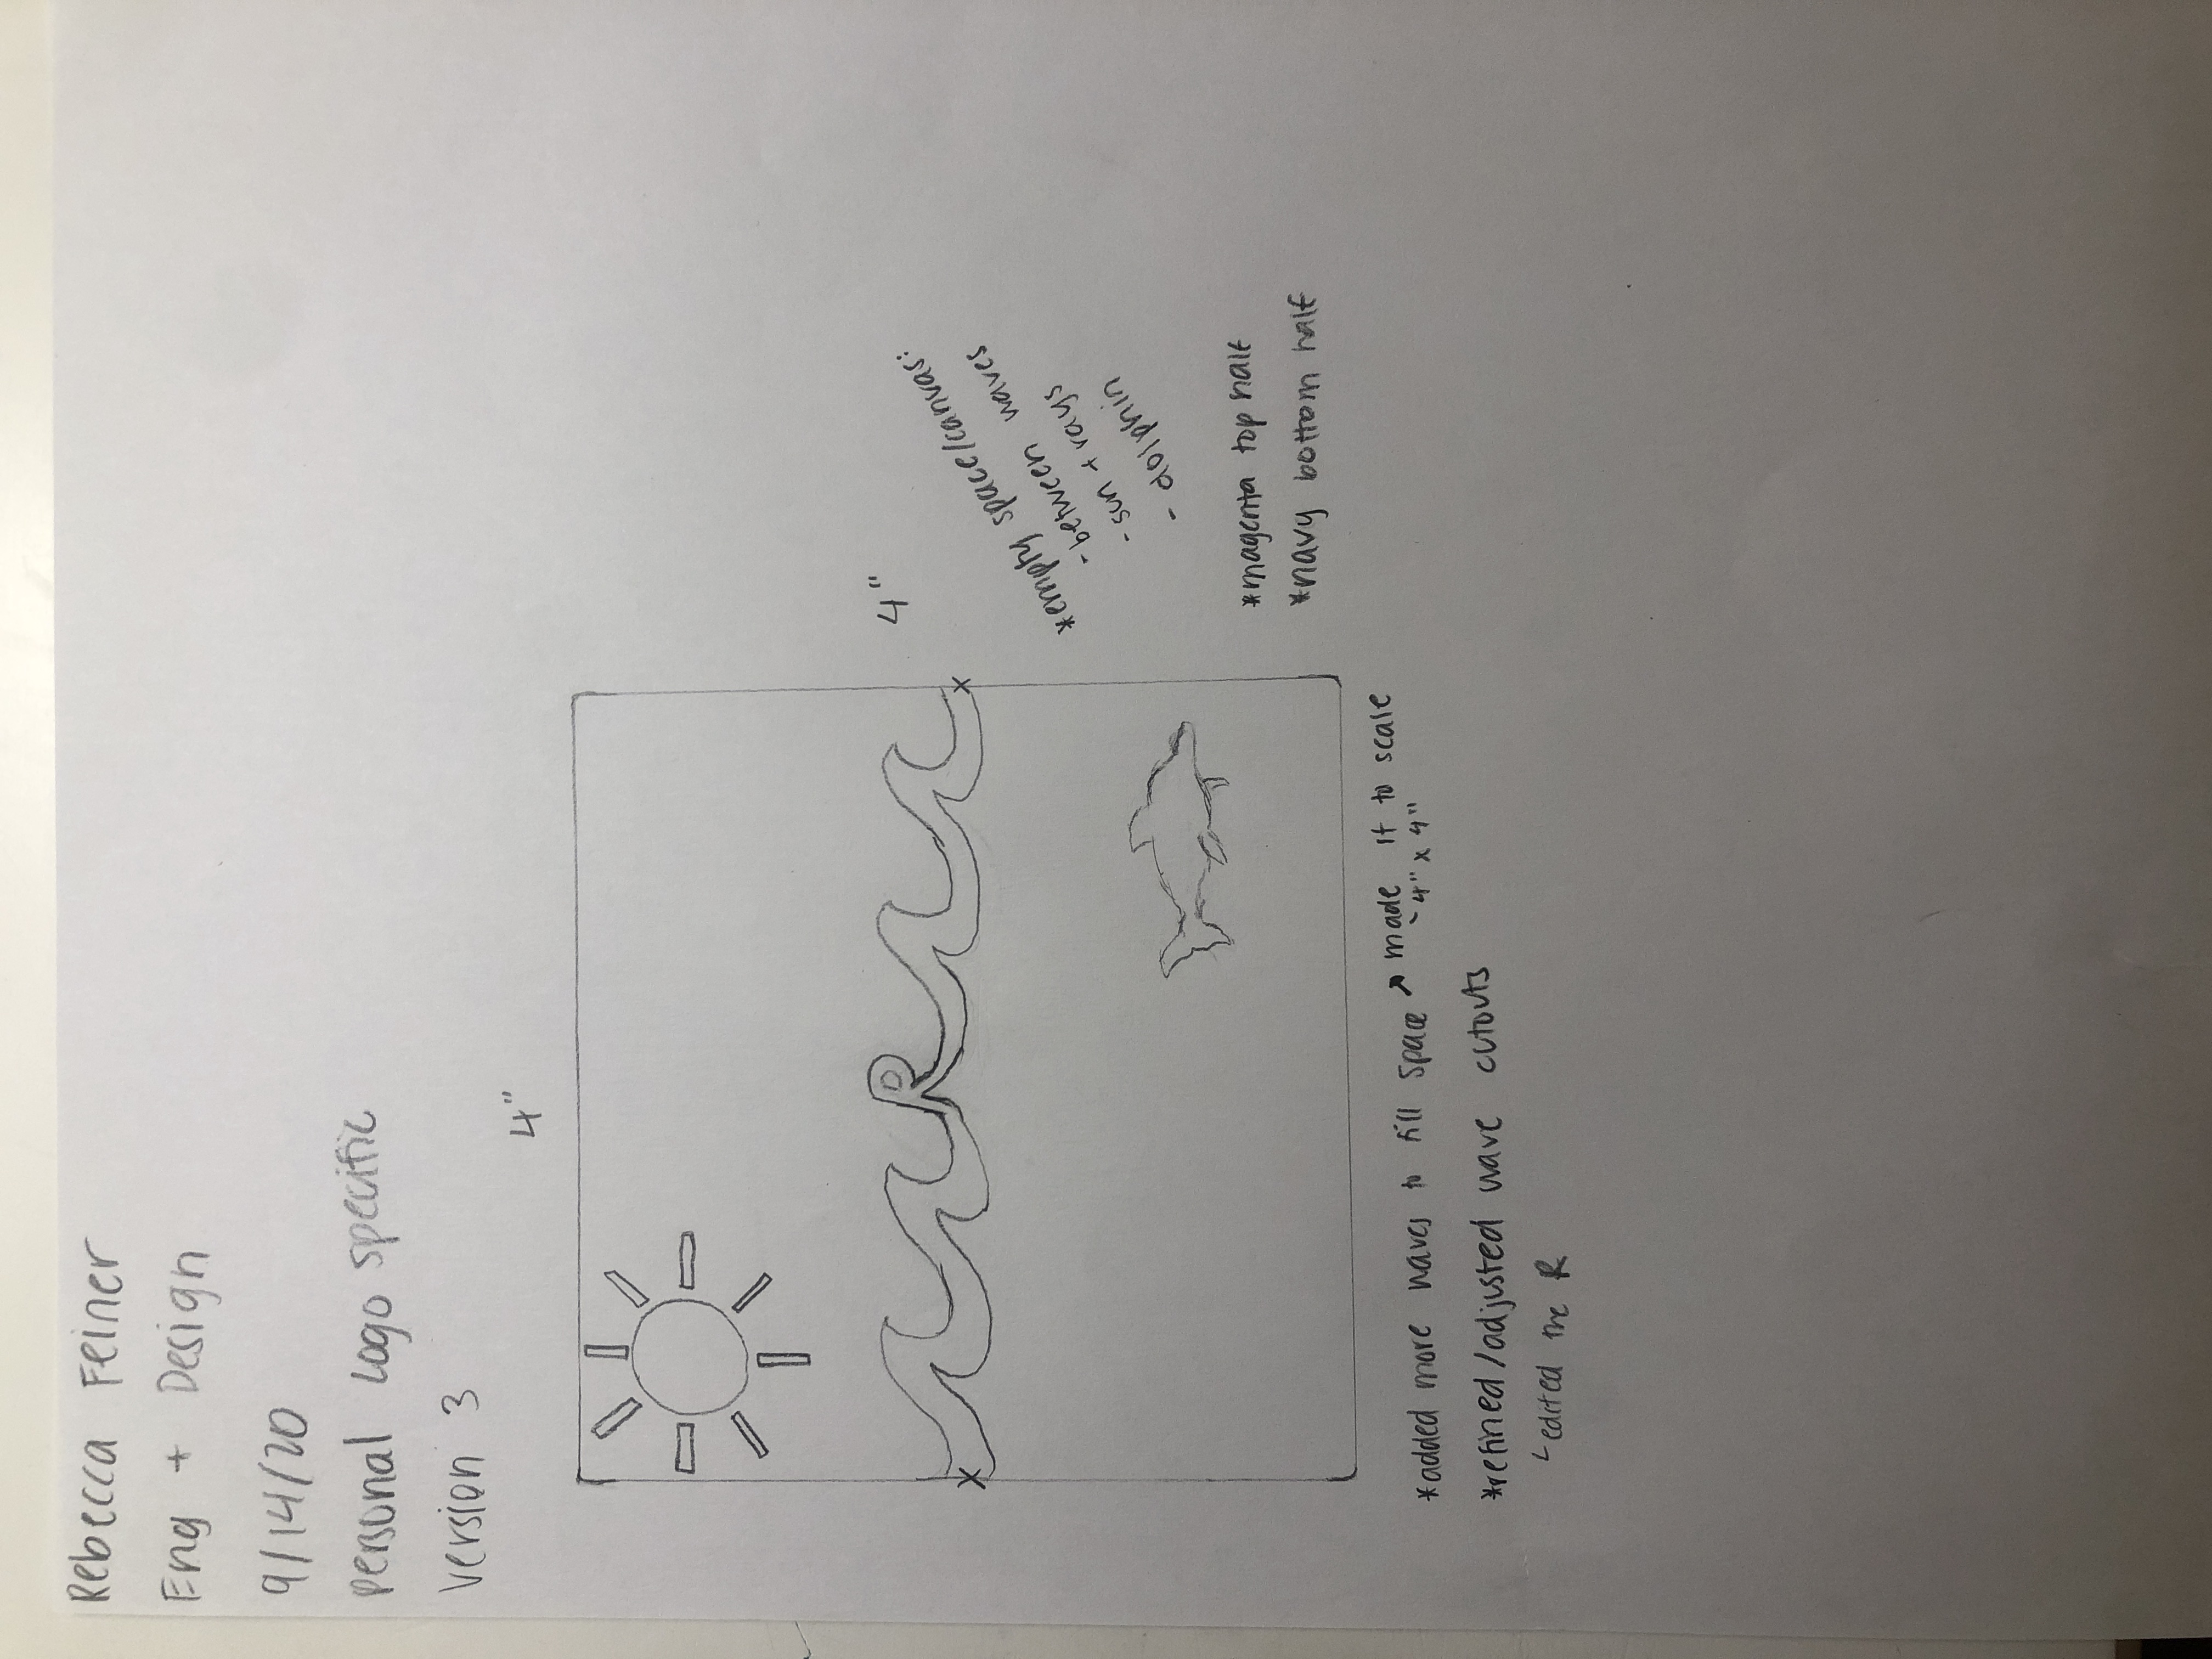 Rebecca Feiner
Eng + Design
9/14/20
Personal Logo specific
Version 3
4"
R
4"
*empty space/canvas:
- between waves
- sun + rays
- dolphin
*magenta top half
*navy bottom half
*added more waves to fill space ↗ made it to scale
- 4" x 4"
*refined/adjusted wave cutouts
└ edited the R